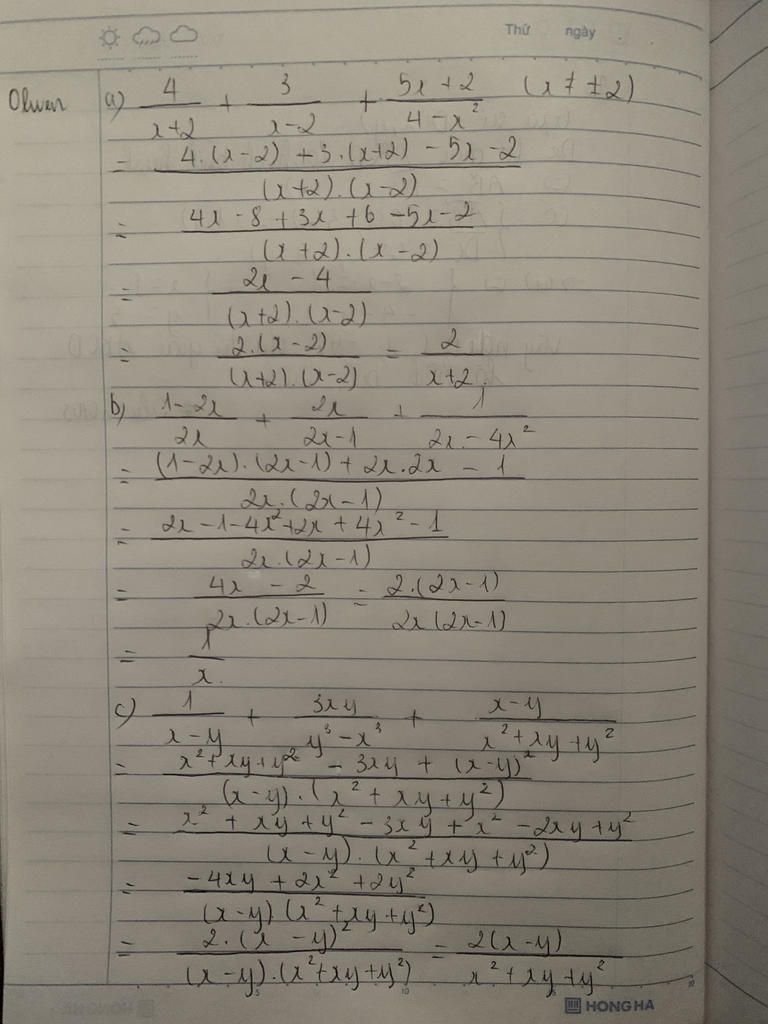 Thứ ngày
Oliver a) 4/(x+2) + 3/(x-2) + (5x+2)/(4-x²) (x ≠ ±2)
= (4.(x-2) + 3.(x+2) - 5x - 2)/((x+2).(x-2))
= (4x - 8 + 3x + 6 - 5x - 2)/((x+2).(x-2))
= (2x - 4)/((x+2).(x-2))
= (2.(x-2))/((x+2).(x-2)) = 2/(x+2)
b) (1-2x)/(2x) + (2x)/(2x-1) + 1/(2x-4x²)
= ((1-2x).(2x-1) + 2x.2x - 1)/(2x.(2x-1))
= (2x-1-4x²+2x+4x²-1)/(2x.(2x-1))
= (4x - 2)/(2x.(2x-1)) = (2.(2x-1))/(2x(2x-1))
= 1/x
c) 1/(x-y) + (3xy)/(y³-x³) + (x-y)/(x²+xy+y²)
= (x²+xy+y² - 3xy + (x-y)²)/((x-y).(x²+xy+y²))
= (x²+xy+y² - 3xy + x² - 2xy + y²)/((x-y).(x²+xy+y²))
= (-4xy + 2x² + 2y²)/((x-y)(x²+xy+y²))
= (2.(x-y)²)/((x-y).(x²+xy+y²)) = (2(x-y))/(x²+xy+y²)
HONG HA